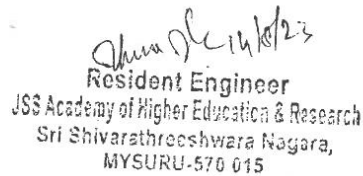 14/8/23
Resident Engineer
JSS Academy of Higher Education & Research
Sri Shivarathreeshwara Nagara,
MYSURU-570 015